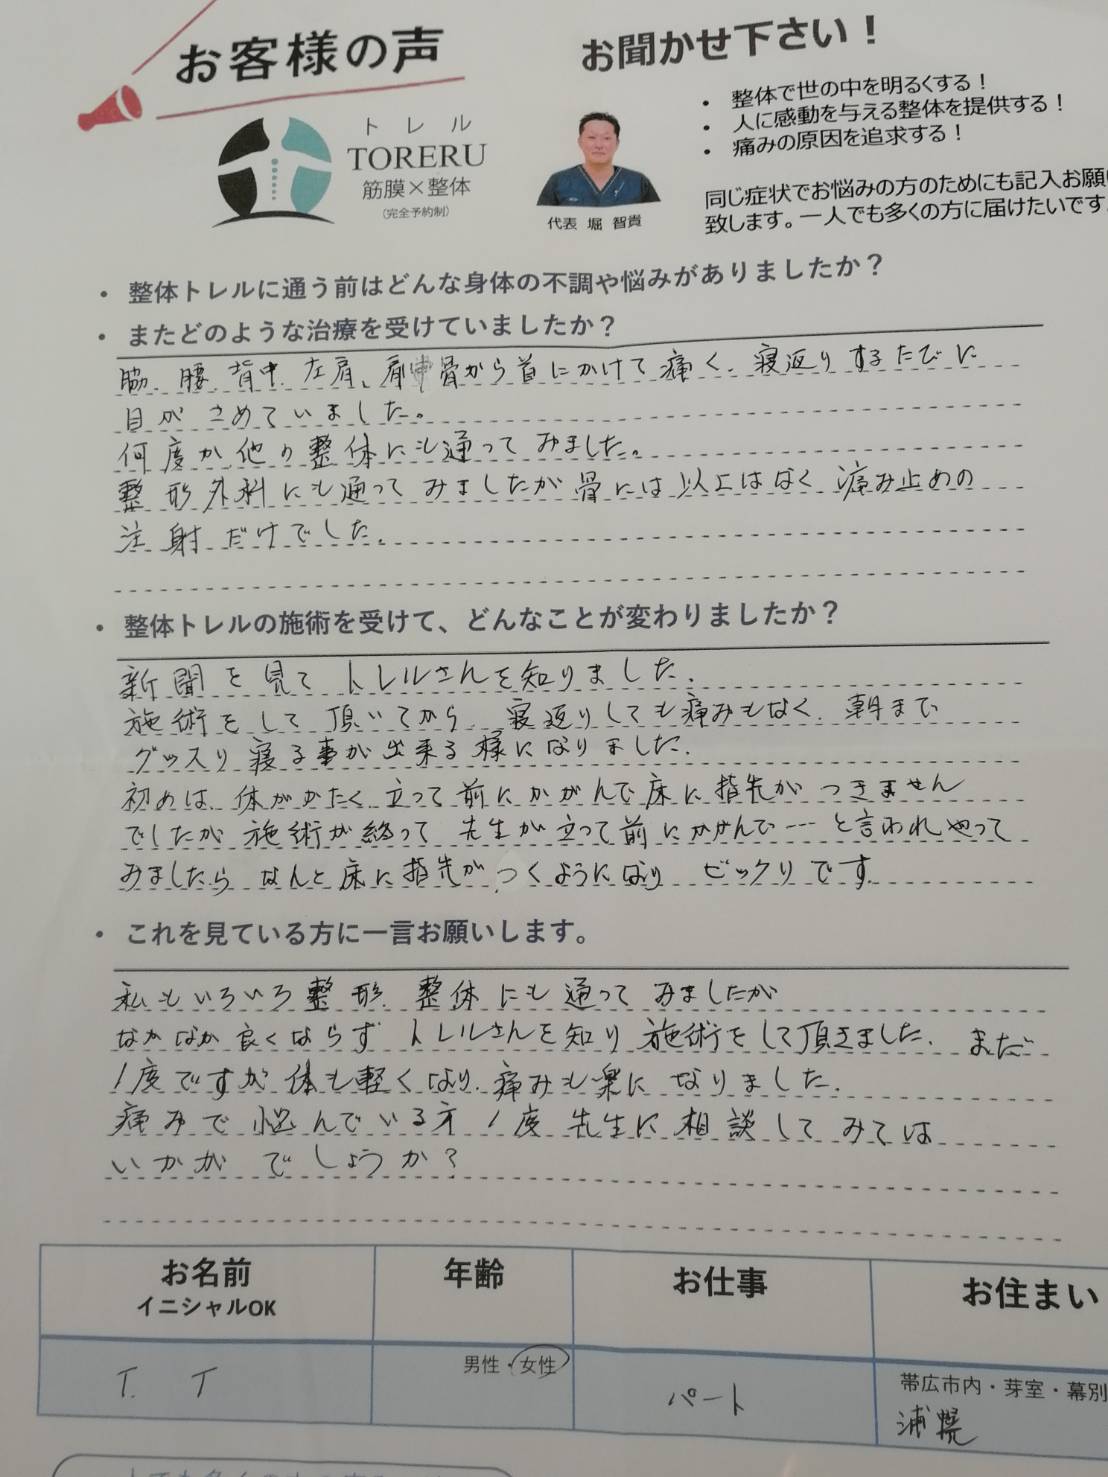 お客様の声
お聞かせ下さい！
・ 整体で世の中を明るくする！
・ 人に感動を与える整体を提供する！
・ 痛みの原因を追求する！
トレル
TORERU
筋膜×整体
(完全予約制)
代表 堀 智貴
同じ症状でお悩みの方のためにも記入お願い
致します。一人でも多くの方に届けたいです
・ 整体トレルに通う前はどんな身体の不調や悩みがありましたか？
・ またどのような治療を受けていましたか？
脇、腰、背中、左肩、肩甲骨から首にかけて痛く、寝返りするたびに
目がさめていました。
何度か他の整体にも通ってみました。
整形外科にも通ってみましたが骨には以上はなく痛み止めの
注射だけでした。
・ 整体トレルの施術を受けて、どんなことが変わりましたか？
新聞を見てトレルさんを知りました。
施術をして頂いてから、寝返りしても痛みもなく、朝まで
グッスリ寝る事が出来る様になりました。
初めは、体がかたく立って前にかがんで床に指先がつきません
でしたが施術が終って先生が立って前にかがんで…と言われやって
みましたらなんと床に指先がつくようになりビックリです。
・ これを見ている方に一言お願いします。
私もいろいろ整形、整体にも通ってみましたが
なかなか良くならずトレルさんを知り施術をして頂きました。まだ
1度ですが体も軽くなり、痛みも楽になりました。
痛みで悩んでいる方1度先生に相談してみては
いかがでしょうか？
お名前 年齢 お仕事 お住まい
イニシャルOK
男性・女性
T. T パート
帯広市内・芽室・幕別
浦幌